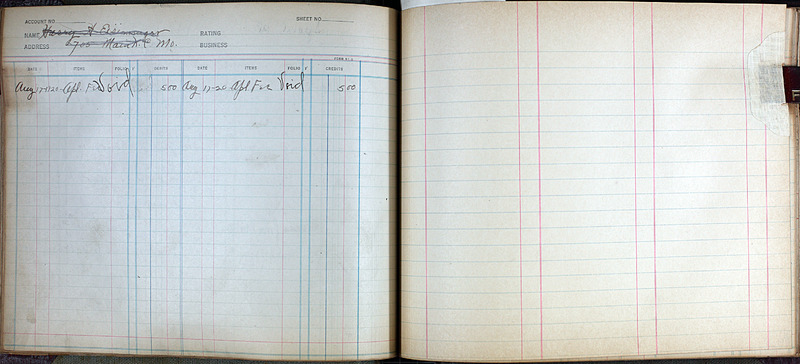 ACCOUNT NO. SHEET NO.
NAME Harry H RATING
ADDRESS 700 Main K.C Mo. BUSINESS
DATE ITEMS FOLIO DEBITS DATE ITEMS FOLIO CREDITS
Aug 17-20 Apl. Fee Void 500 Aug 17-20 Apl Fee Void 500